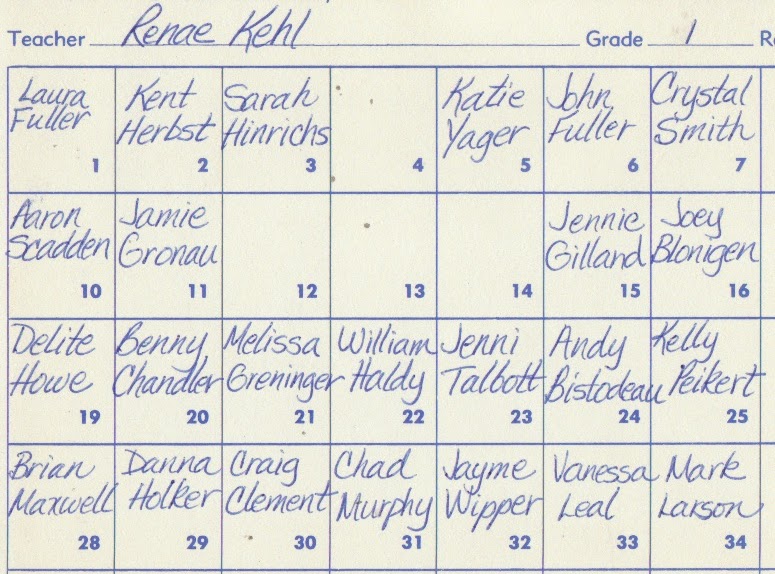 Teacher Renae Kehl Grade 1 R
Laura Kent Sarah Katie John Crystal
Fuller Herbst Hinrichs Yager Fuller Smith
1 2 3 4 5 6 7
Aaron Jamie Jennie Joey
Scadden Gronau Gilland Blonigen
10 11 12 13 14 15 16
Delite Benny Melissa William Jenni Andy Kelly
Howe Chandler Greninger Haldy Talbott Bistodeau Peikert
19 20 21 22 23 24 25
Brian Danna Craig Chad Jayme Vanessa Mark
Maxwell Holker Clement Murphy Wipper Leal Larson
28 29 30 31 32 33 34